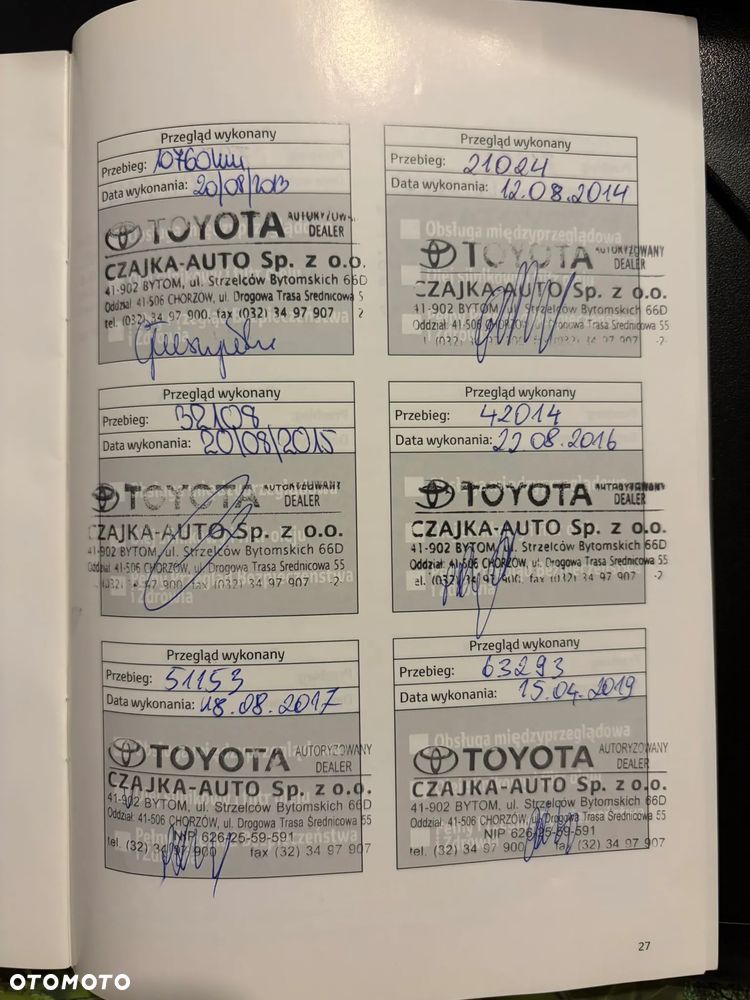 Przegląd wykonany
Przebieg: 10760km
Data wykonania: 20/08/2013
TOYOTA AUTORYZOWA
DEALER
CZAJKA-AUTO Sp. z o.o.
41-902 BYTOM, ul. Strzelców Bytomskich 66D
Oddział 41-506 CHORZÓW, ul. Drogowa Trasa Średnicowa 5
tel. (032) 34 97 900, fax (032) 34 97 907 2
Przegląd wykonany
Przebieg: 21024
Data wykonania: 12.08.2014
Obsługa międzyprzeglądowa
TOYOTA AUTORYZOWANY
DEALER
CZAJKA-AUTO Sp. z o.o.
41-902 BYTOM, ul. Strzelców Bytomskich 66D
Oddział: 41-506 CHORZÓW, ul. Drogowa Trasa Średnicowa 55
(032) 34 97 907 -2-
Przegląd wykonany
Przebieg: 32108
Data wykonania: 20/08/2015
TOYOTA AUTORYZOWANY
DEALER
CZAJKA-AUTO Sp. z o.o.
41-902 BYTOM, ul. Strzelców Bytomskich 66D
Oddział: 41-506 CHORZÓW, ul. Drogowa Trasa Średnicowa 55
34 97 900, fax (032) 34 97 907 -2
i Zdrowia
Przegląd wykonany
Przebieg: 42014
Data wykonania: 22.08.2016
TOYOTA AUTORYZOWANY
DEALER
CZAJKA-AUTO Sp. z o.o.
41-902 BYTOM, ul. Strzelców Bytomskich 66D
Oddział: 41-506 CHORZÓW, ul. Drogowa Trasa Średnicowa 55
tel. (032) 34 97 900, fax (032) 34 97 907 -2
Przegląd wykonany
Przebieg: 51153
Data wykonania: 18.08.2017
TOYOTA AUTORYZOWANY
DEALER
CZAJKA-AUTO Sp. z o.o.
41-902 BYTOM, ul. Strzelców Bytomskich 66D
Oddział: 41-506 CHORZÓW, ul. Drogowa Trasa Średnicowa 55
NIP 626-25-59-591
tel. (32) 34 97 900 fax (32) 34 97 907
Przegląd wykonany
Przebieg: 63293
Data wykonania: 15.04.2019
Obsługa międzyprzeglądowa
TOYOTA AUTORYZOWANY
DEALER
CZAJKA-AUTO Sp. z o.o.
41-902 BYTOM, ul. Strzelców Bytomskich 66D
Oddział: 41-506 CHORZÓW, ul. Drogowa Trasa Średnicowa 55
NIP 626-25-59-591
tel. (32) 34 97 900 fax (32) 34 97 907
27
OTOMOTO